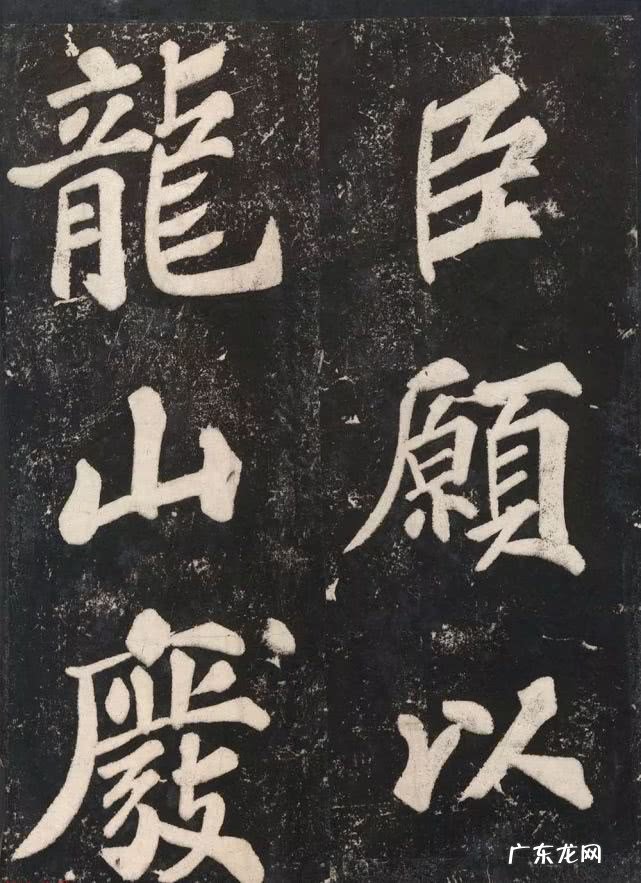 臣願以
龍山廢
广东龙网